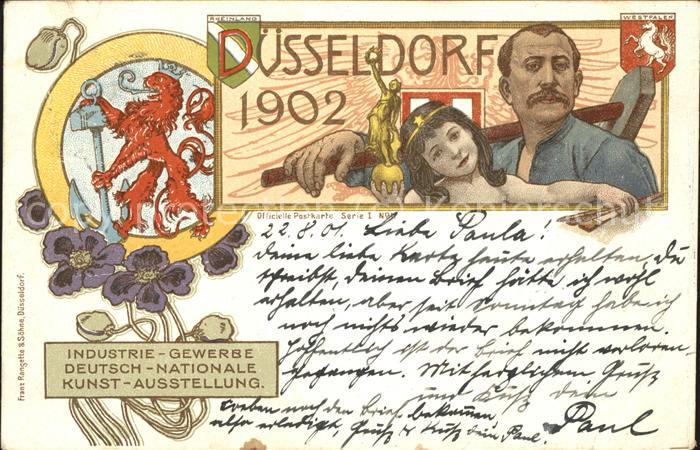 RHEINLAND
WESTFALEN
DÜSSELDORF
1902
Officielle Postkarte. Serie I No
22.8.01. Liebe Paula!
deine liebe Karte heute erhalten, du
schreibst, deinen Brief hätte ich wohl
erhalten, aber seit Sonntag habe ich
noch nichts wieder bekommen.
Hoffentlich ist der Brief nicht verloren
gegangen. Mit herzlichem Gruß
und Kuß dein
Paul
soeben noch den Brief bekommen,
also erledigt, Gruß & Kuß dein Paul.
INDUSTRIE-GEWERBE
DEUTSCH-NATIONALE
KUNST-AUSSTELLUNG.
Franz Rangette & Söhne, Düsseldorf.